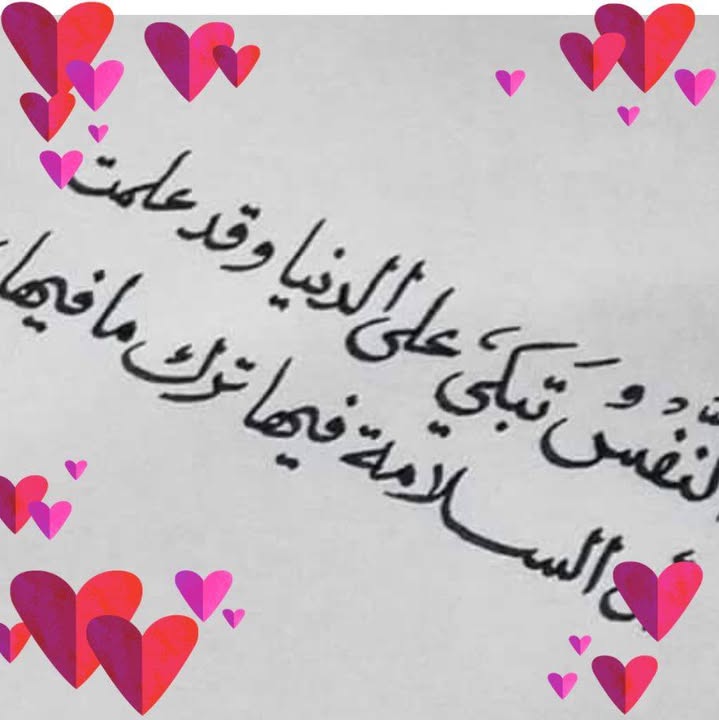 النَّفْسُ تبكي على الدنيا وقد علمت
أن السلامة فيها ترك ما فيها